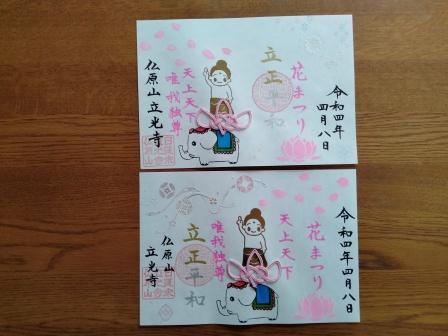 令和四年
四月八日
花まつり
立正平和
天上天下
唯我独尊
仏原山立光寺
令和四年四月八日
花まつり
天上天下
立正平和
唯我独尊
仏原山
立光寺